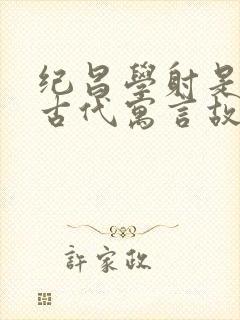 纪昌學射是
古代寓言故
許家政